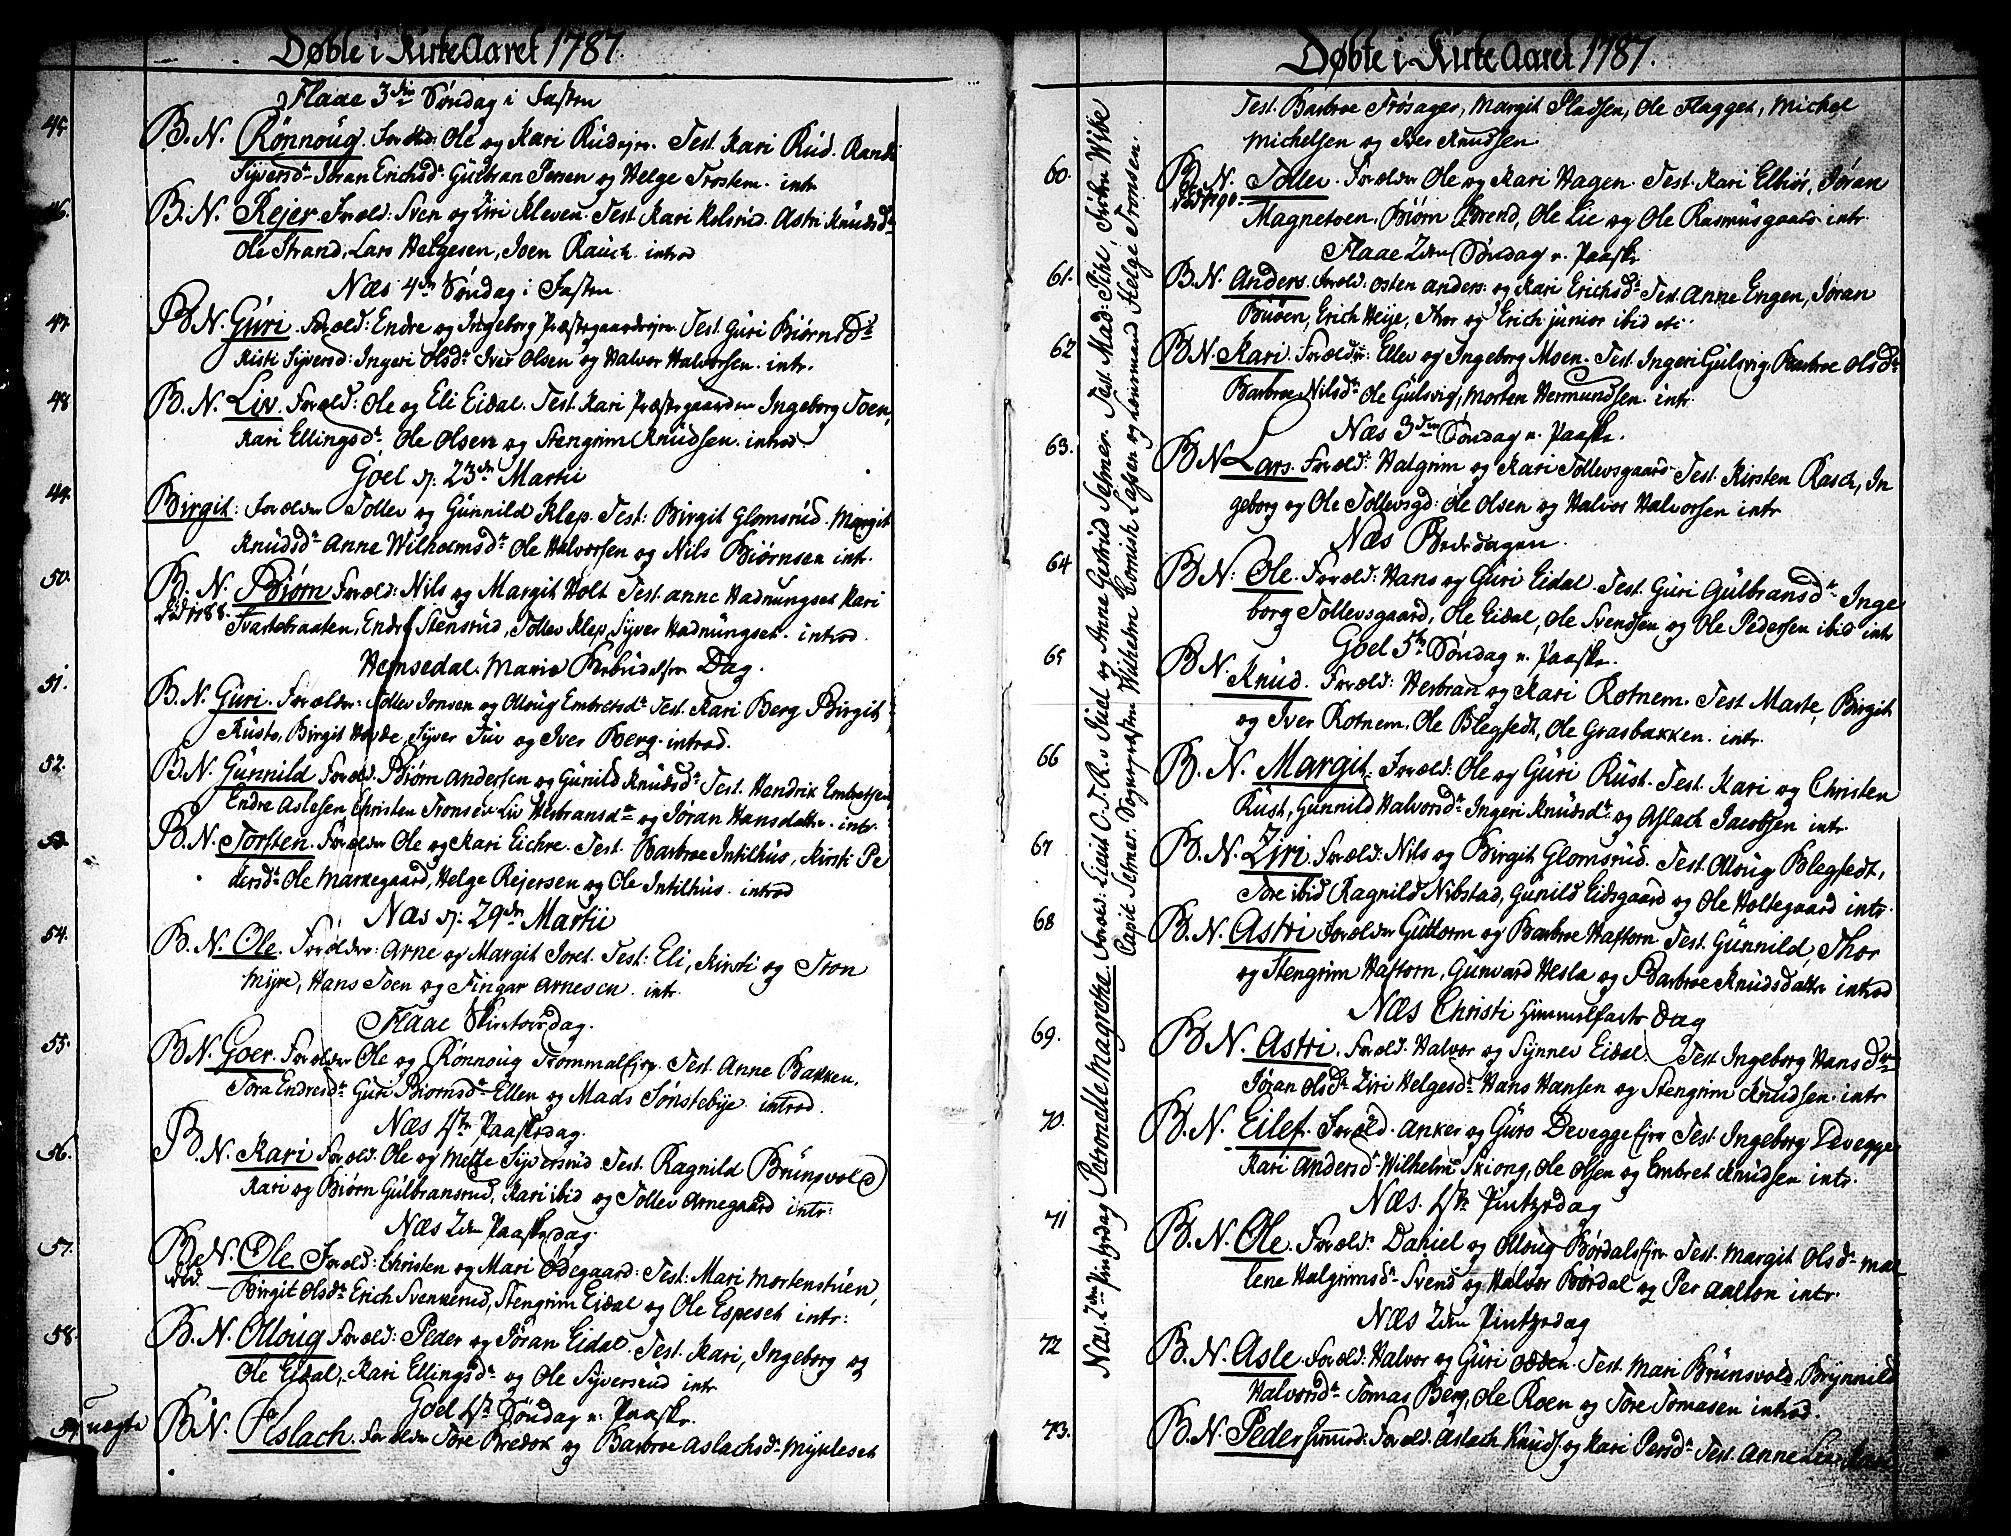 Døbte i Kirke Aaret 1787.
Flaae 3die Søndag i Fasten
45. B. N. Rønnoug. Forældr. Ole og Kari Rudejer. Test. Kari Rud. Randi
Syversdr Jøran Erichsdr Gulbran Persen og Helge Trostem. intr
46. B. N. Rejer. Foræld: Sven og Ziri Kleven. Test. Kari Kolsrud. Astri Knudsdr
Ole Strand, Lars Helgesen, Joen Rauch. introd
Næs 4de Søndag i Fasten
47. B. N. Guri. Foræld: Endre og Ingeborg Præstegaardsejer. Test. Guri Biørnsdr
Kisti Syversd: Ingeri Olsdr Iver Olsen og Halvor Halvorsen. intr.
48 B. N. Liv. Foræld: Ole og Eli Eidal. Test. Kari Præstegaarden Ingeborg Toen,
Kari Ellingsdr Ole Olsen og Stengrim Knudsen. introd
Goel d. 23de Martii
49. Birgit: Forældre Tollev og Gunnild Klep. Test: Birgit Glomsrud. Margit
Knudsdr Anne Wilholmsdr Ole Halvorsen og Nils Biørnsen intr.
50. B. N. Biørn Foræld: Nils og Margit Holt Test. Anne Hadnungset Kari
død 1788. Svartebraaten, Endre Stensrud, Tollev Klep, Syver Hadnungset. introd
Hemsedal. Mariæ Bebudelses Dag.
51. B. N. Guri. Forældre: Tollev Jonsen og Olloug Embretsdr Test. Kari Berg Birgit
Kusto, Birgit Hovde, Syver Tuv og Iver Berg. introd.
52. B. N. Gunnild Foræld. Biørn Andersen og Gunild Knudsdr Test. Hendrik Embretsen
Endre Aslesen, Christen Tronsen Liv Herbransdr og Jøran Hansdatter. intr.
53. B. N. Torsten. Forældre Ole og Kari Eichre. Test. Barbroe Intilhus, Kirsti Pe
dersdr Ole Markegaard, Helge Rejersen og Ole Intilhus. introd
Næs d. 29de Martii
54. B. N. Ole. Forældre: Arne og Margit Joret. Test: Eli, Kirsti og Tron
Myre, Hans Toen og Fingar Arnesen. intr.
Flaae Skiertorsdag.
55. B. N. Goer. Forældre Ole og Rønnoug Trommalsejer. Test. Anne Bakken,
Tora Endresdr Guri Biornsdr Ellen og Mads Sønstebye. introd.
Næs 1ste Paaskedag.
56. B. N. Kari Foræld. Ole og Mette Syversrud. Test. Ragnild Brunsvold
Kari og Biørn Gulbransrud, Kari ibid og Tollev Arnegaard intr:
Næs 2den Paaskedag.
57. B. N. Ole Foræld: Christen og Mari Ødegaard: Test: Mari Mortenstuen,
død. Birgit Olsdr Erich Svenkerud, Stengrim Eidal og Ole Espeset intr:
58. B. N. Olloug Foræld: Peder og Jøran Eidal. Test. Kari, Ingeborg og
Ole Eidal, Kari Ellingsdr og Ole Syversrud intr
Goel 1ste Søndag e. Paaske.
59. uægte B. N. Aslach. Forældre Tore Bredok og Barbroe Aslachsdr Mykleset
Døbte i Kirke Aaret 1787.
Test. Barbroe Frøsager, Margit Pladsen, Ole Flagget, Michel
Michelsen og Peer Knudsen.
60. B. N. Tollev. Forældre Ole og Kari Hagen. Test. Kari Elhiør, Jøran
død 1790. Magnetoen, Biørn Brend, Ole Lie og Ole Rasmusgaard. intr.
Flaae 2den Søndag e. Paaske
61. B. N. Anders. Foræld: Osten Anders: og Kari Erichsdr Test. Anne Engen, Jøran
Buøen, Erich Heije, Thor og Erich junior ibid etc.
62 B. N. Kari. Forældr: Ellev og Ingeborg Moen. Test. Ingeri Gulsvig, Barbroe Olsdr
Barbroe Nilsdr Ole Gulsvig, Morten Hermundsen. intr
Næs 3die Søndag e. Paaske.
63. B. N. Lars. Foræld: Halgrim og Kari Tollevsgaard Test. Kirsten Rasch, In
geborg og Ole Tollevsgd: Ole Olsen og Halvor Halvorsen intr
Næs Bededagen.
64 B. N. Ole. Foræld: Hans og Guri Eidal. Test. Guri Gulbransdr Inge
borg Tollevsgaard, Ole Eidal, Ole Svendsen og Ole Pedersen ibid intr
Goel 5te Søndag e. Paaske.
65 B. N. Knud. Foræld: Herbran og Kari Rotnem. Test Marte, Birgit
og Iver Rotnem. Ole Blegsedt, Ole Grasbakken. intr.
66 B. N. Margit. Foræld: Ole og Guri Rust. Test. Kari og Christen
Rust, Gunnild Halvorsdr Ingeri Knudsdr og Aslach Jacobsen intr.
67 B. N. Ziri. Foræld: Nils og Birgit Glomsrud. Test. Olloug Blegsedt,
Tore ibid Ragnild Nibstad, Gunild Eidsgaard og Ole Holtegaard intr.
68 B. N. Astri Forældre Guttorm og Barbroe Haftorn Test. Gunnild, Thor
og Stengrim Haftorn, Gunvard Hesla og Barbroe Knudsdatter introd
Næs Christi Himmelfarts Dag
69. B. N. Astri. Foræld. Halvor og Synnev Eidal. Test. Ingeborg Hansdr
Jøran Olsdr Ziri Helgesdr Hans Hansen og Stengrim Knudsen. intr
70. B. N. Eilef. Foræld. Anker og Guro Deveggesejer Test. Ingeborg Devegge
Kari Andersdr Wilhelm Skiong, Ole Olsen og Embret Knudsen intr.
Næs. 1ste Pintzedag
71 B. N. Ole. Foræld. Daniel og Olloug Børdalsejer Test. Margit Olsdr Mal
lene Halgrimsdr Svend og Halvor Børdal og Per Aalton intr.
Næs 2den Pintzedag
72 B. N. Asle. Foræld: Halvor og Guri Odden. Test. Mari Brunsvold, Brynnild
Halvorsdr Tomas Berg, Ole Roen og Tore Tomasen introd.
73. B. N. Peder Foræld. Aslach Knuds. og Kari Persdr Test. Anne Lie, Kari
Næs. 2den Pintzedag Petronelle Magrethe Foræld: Lieut C. F. R. v Juel og Anne Gertrud Sehner. Test. Mad: Pihl, Jfr Wibe
Capit Sehner. Sognepræsten Wilhelm Cornish Lassen og Lensmand Helge Tronsen.